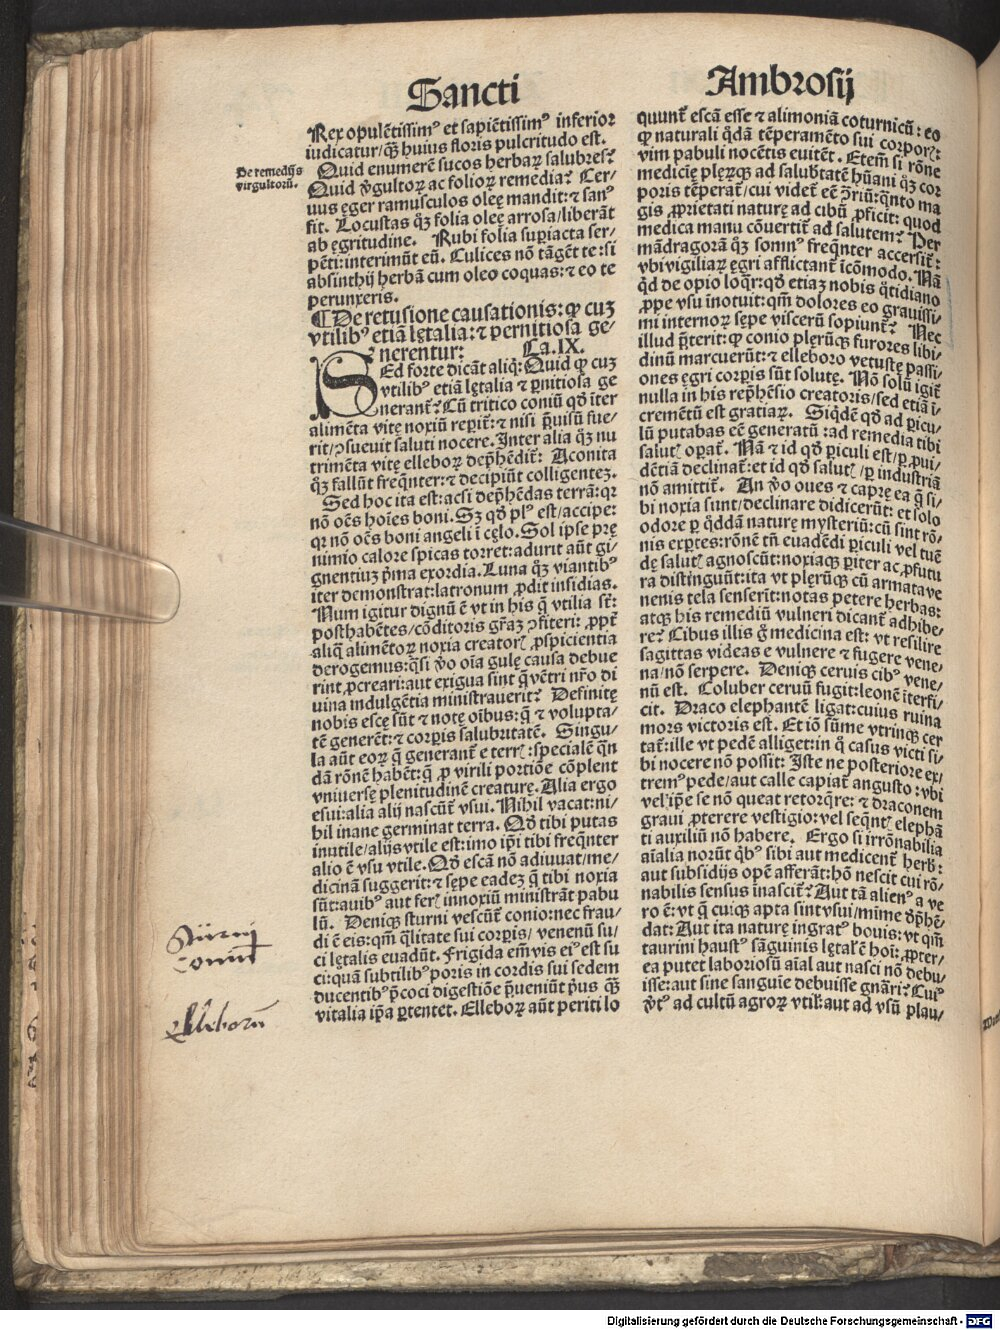 Sancti
Ambrosij
Rex opulētissimꝰ et sapiētissimꝰ inferior
iudicatur/ꝙ̄ huius floris pulcritudo est.
De remedijs
virgultorū.
Quid enumerē sucos herbaꝝ salubres?
Quid v̄gultorꝝ ac folioꝝ remedia? Cer/
uus ęger ramusculos oleę mandit: ⁊ sanꝰ
fit. Locustas qͦꝫ folia oleę arrosa/liberāt
ab ęgritudine. Rubi folia suꝑiacta ser/
pēti:interimūt eū. Culices nō tāgēt te:si
absinthij herbā cum oleo coquas: ⁊ eo te
perunxeris.
¶ De retusione causationis: ꝙ cuꝫ
vtilibꝰ etiā lętalia: ⁊ pernitiosa ge/
nerentur: Ca.IX.
SEd forte dicāt aliq̄: Quid ꝙ cuꝫ
vtilibꝰ etiā lętalia ⁊ ꝑnitiosa ge
nerant̄? Cū tritico coniū qd̄ iter
alimēta vitę noxiū reꝑit̄: ⁊ nisi p̄uisū fue/
rit/ꝯsueuit saluti nocere. Inter alia qͦꝫ nu
trimēta vitę elleboꝝ dep̄hēdit̄: Aconita
qͦꝫ fallūt freq̄nter: ⁊ decipiūt colligenteꝫ.
Sed hoc ita est:acsi dep̄hēdas terrā:qꝛ
nō oēs hoīes boni. Sꝫ qd̄ plꝰ est/accipe:
qꝛ nō oēs boni angeli ī cęlo. Sol ipse prę
nimio calore spicas torret:adurit aūt gi/
gnentiuꝫ p̄ma exordia. Luna qͦꝫ viantibꝰ
iter demonstrat:latronum ꝓdit insidias.
Num igitur dignū ē vt in his q̄ vtilia st̄:
posthabētes/cōditoris gr̄aꝫ ꝯfiteri: ꝓpt̄
aliq̄ alimētoꝝ noxia creatorꝭ ꝓspicientia
derogemus:q̄si v̄o oīa gulę causa debue
rint ꝓcreari:aut exigua sint q̄ vētri nr̄o di
uina indulgētia ministrauerit? Definitę
nobis escę sūt ⁊ notę oībus:q̄ ⁊ volupta/
tē generēt: ⁊ corꝑis salubritatē. Singu/
la aūt eoꝝ q̄ generant̄ e terrꝭ:specialē qn̄
dā rōnē habēt:q̄ ꝓ virili portiōe cōplent
vniuersę plenitudinē creaturę. Alia ergo
esui:alia alij nascūt̄ vsui. Nihil vacat:ni/
hil inane germinat terra. Qd̄ tibi putas
inutile/alijs vtile est:imo ip̄i tibi freq̄nter
alio ē vsu vtile. Qd̄ escā nō adiuuat/me/
dicinā suggerit: ⁊ sępe eadeꝫ q̄ tibi noxia
sūt:auibꝰ aut ferꝭ innoxiū ministrāt pabu
lū. Deniqꝫ sturni vescūt̄ conio:nec frau/
di ē eis:qm̄ q̄litate sui corꝑis/ venenū su/
ci lętalis euadūt. Frigida em̄ vis eiꝰ est su
ci:quā subtilibꝰ poris in cordis sui sedem
ducentibꝰ p̄coci digestiōe p̄ueniūt p̄us ꝙ̄
vitalia ip̄a ꝑtentet. Elleboꝝ aūt periti lo
Sturni
coniū
Elleborū
quunt̄ escā esse ⁊ alimoniā coturnicū: eo
ꝙ naturali q̄dā tēperamēto sui corporꝭ:
vim pabuli nocētis euitēt. Etem̄ si rōne
medicię plęrꝫ ad salubritatē hūani qͦꝫ cor
poris tēperat̄/cui videt̄ eē ꝯ̄riū:q̄nto ma
gis ꝓprietati naturę ad cibū ꝓficit: quod
medica manu cōuertit̄ ad salutem? Per
mādragorā qͦꝫ somnꝰ freq̄nter accersit̄:
vbi vigiliaꝝ ęgri afflictant̄ icōmodo. Nā
qd̄ de opio loq̄r:qd̄ etiaꝫ nobis q̄tidiano
ꝓpe vsu inotuit:qm̄ dolores eo grauissi/
mi internoꝝ sępe viscerū sopiunt̄? Nec
illud p̄terit: ꝙ conio plęrūqꝫ furores libi/
dinū marcuerūt: ⁊ elleboro vetustę passi/
ones ęgri corꝑis sūt solutę. Nō solū igit̄
nulla in his rep̄hēsio creatoris/sed etiā i/
cremētū est gratiaꝝ. Siqdē qd̄ ad ꝑicu/
lū putabas eē generatū :ad remedia tibi
salutꝭ oꝑat̄. Nā ⁊ id qd̄ ꝑiculi est/ꝑ ꝓui/
dētiā declinat̄:et id qd̄ salutꝭ/ꝑ industriā
nō amittit̄. An v̄o oues ⁊ caprę ea q̄ si/
bi noxia sunt/declinare didicerūt: et solo
odore ꝑ q̄ddā naturę mysteriū:cū sint rō/
nis exꝑtes:rōnē tn̄ euadēdi ꝑiculi vel tuē
dę salutꝭ agnoscūt:noxiaqꝫ ꝑiter ac ꝓfutu
ra distinguūt:ita vt plęrūqꝫ cū armata ve
nenis tela senserit:notas petere herbas:
atqꝫ his remediū vulneri dicant̄ adhibe/
re? Cibus illis g̊ medicina est: vt resilire
sagittas videas e vulnere ⁊ fugere vene/
na/nō serpere. Deniqꝫ ceruis cibꝰ vene/
nū est. Coluber ceruū fugit:leonē īterfi/
cit. Draco elephantē ligat:cuius ruina
mors victoris est. Et iō sūme vtrinqꝫ cer
tat̄:ille vt pedē alliget:in q̄ casus victi si/
bi nocere nō possit: Iste ne posteriore ex/
tremꝰ pede/aut calle capiat̄ angusto :vbi
vel ip̄e se nō queat retorq̄re: ⁊ draconem
graui ꝓterere vestigio:vel seq̄ntꝭ elephā
ti auxiliū nō habere. Ergo si irrōnabilia
aīalia norūt qͥbꝰ sibi aut medicent̄ herbꝭ:
aut subsidijs opē afferāt:hō nescit cui rō/
nabilis sensus inascit̄? Aut tā alienꝰ a ve
ro ē:vt q̄ cuiqꝫ apta sint vsui/mīme dep̄hē/
dat: Aut ita naturę ingratꝰ bouis: vt qm̄
taurini haustꝰ sāguinis lętal'ē hoī: ꝓpter/
ea putet laboriosū aīal aut nasci nō debu/
isse:aut sine sanguie debuisse gnāri? Cuiꝰ
v̄tꝰ ad cultū agroꝝ vtilꝭ:aut ad vsū plau/
Digitalisierung gefördert durch die Deutsche Forschungsgemeinschaft - DFG